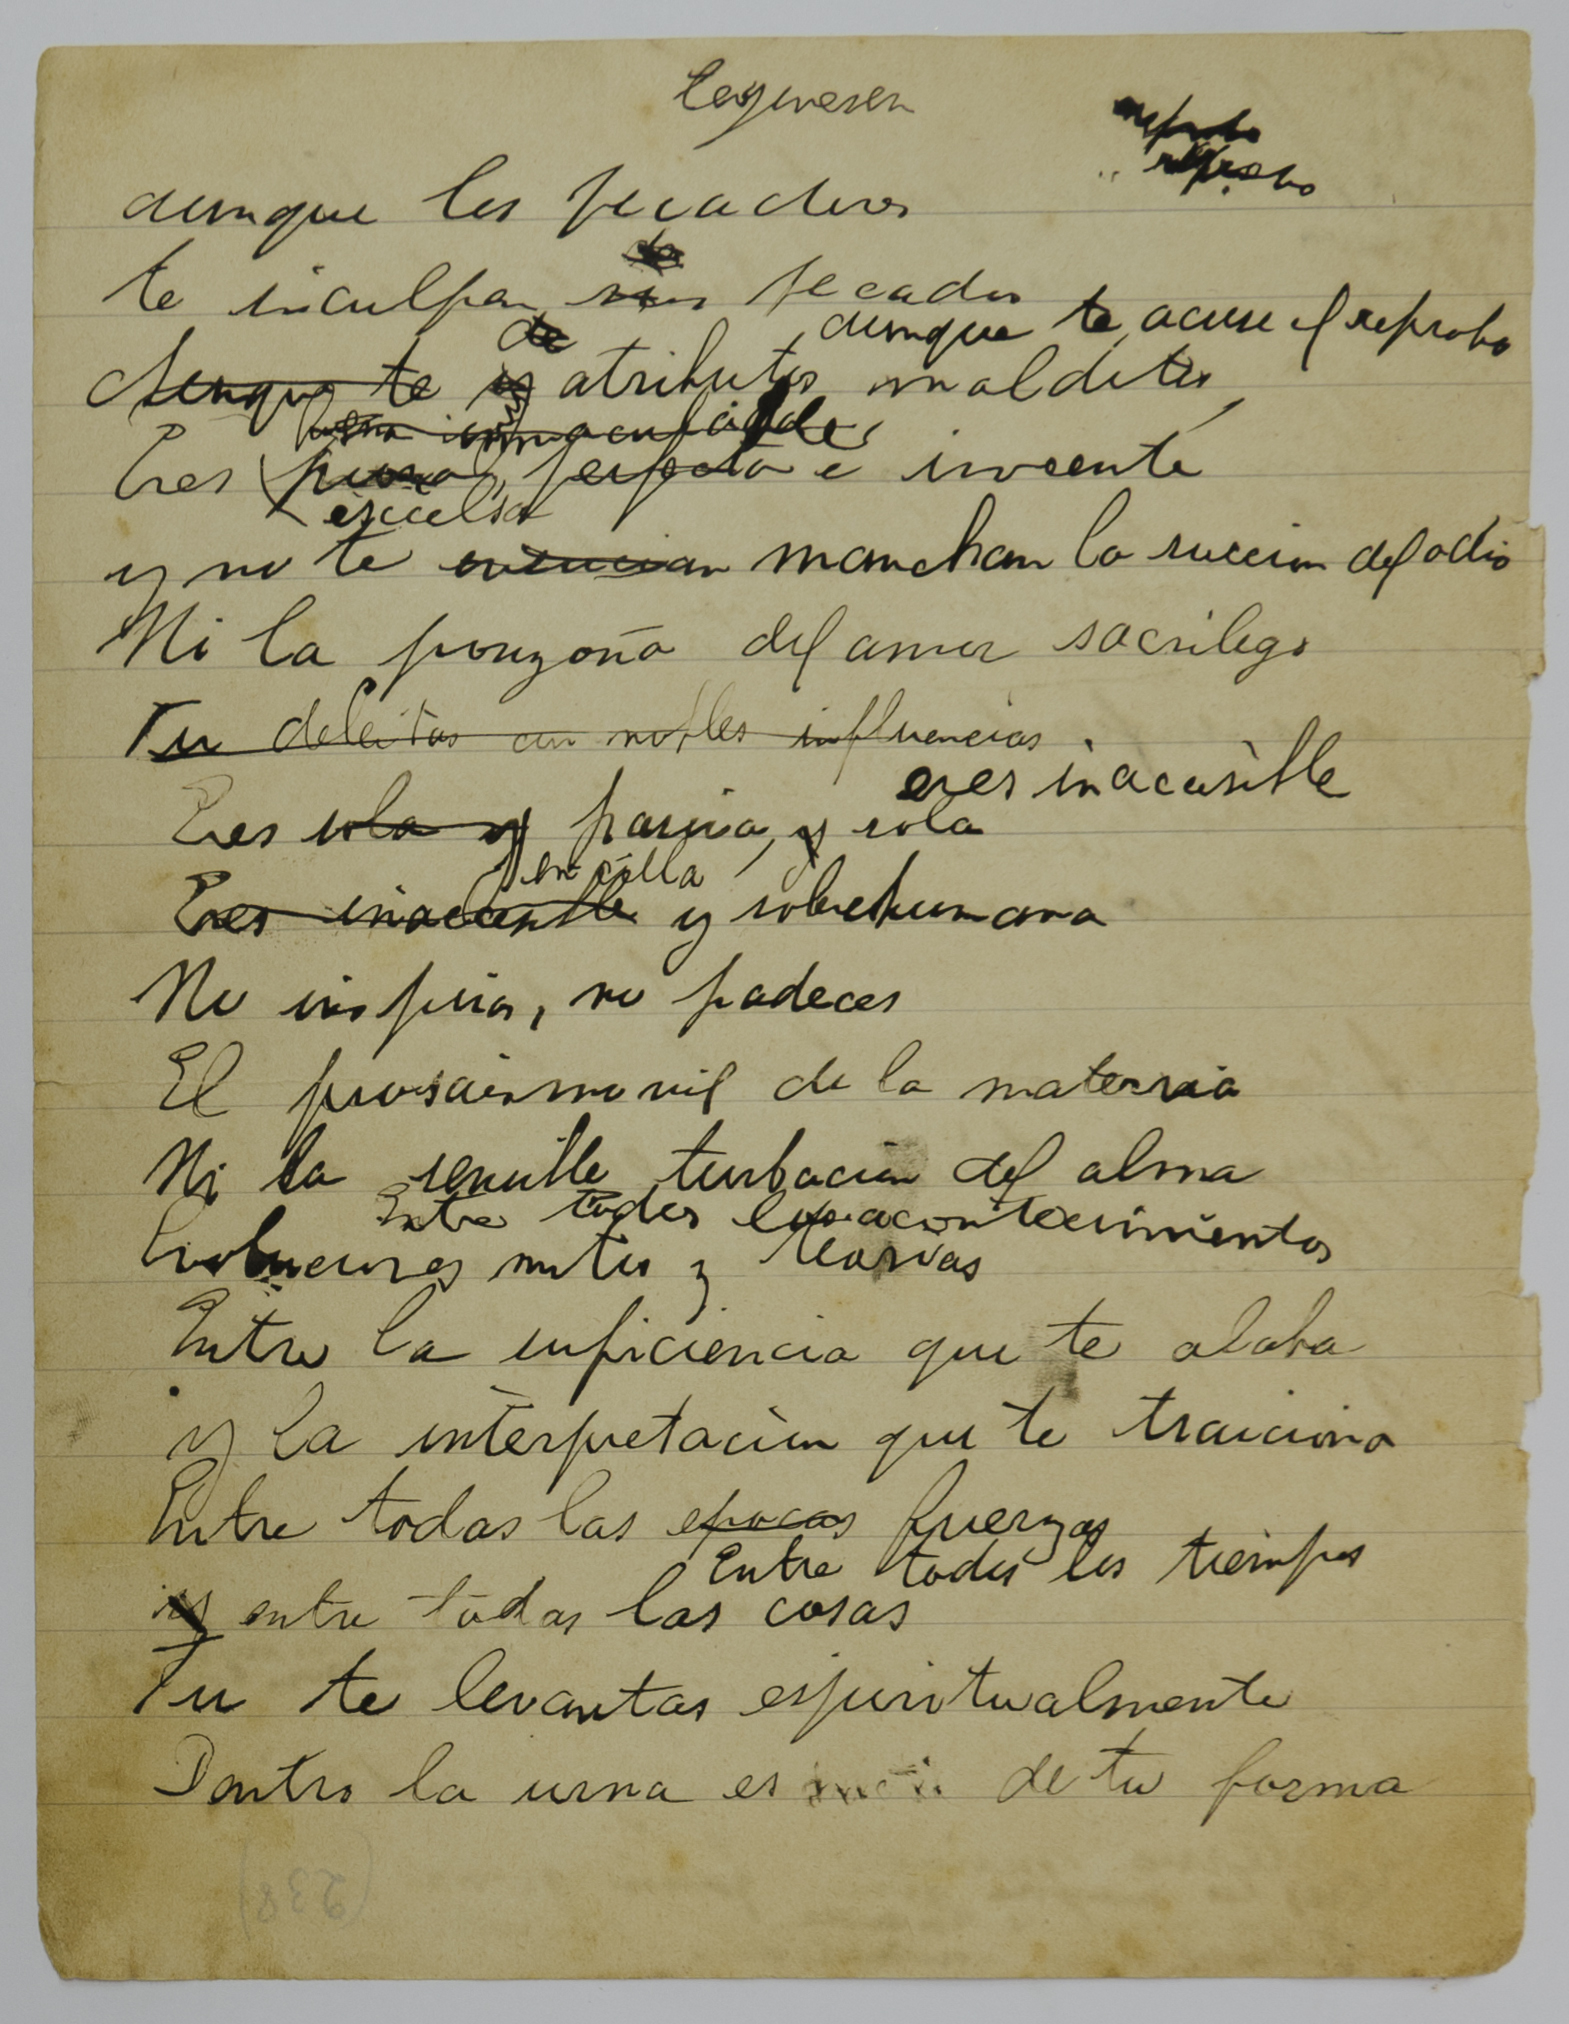 aunque los pecadores
te inculpan sus pecados
aunque te acuse el reprobo
de
Aunque te y atributos malditos,
inmaculada
Eres pura, perfecta e inocente
excelsa
y no te manchan la succion del odio
Ni la ponzoña del amor sacrilego
Tu deleitas con nobles influencias.
eres inacesible
Eres sola y pasiva, y sola
sencilla
Eres inaccesible y sobrehumana
No inspiras, no padeces
El prosaismo vil de la materia
Ni la sensible turbacion del alma
Entre todos los acontecimientos
Evoluciones mitos y teorias
Entre la suficiencia que te alaba
y la interpretación que te traiciona
Entre todas las epocas fuerzas
Entre todos los tiempos
y entre todas las cosas
Tu te levantas espiritualmente
Dentro la urna es de tu forma
(238)